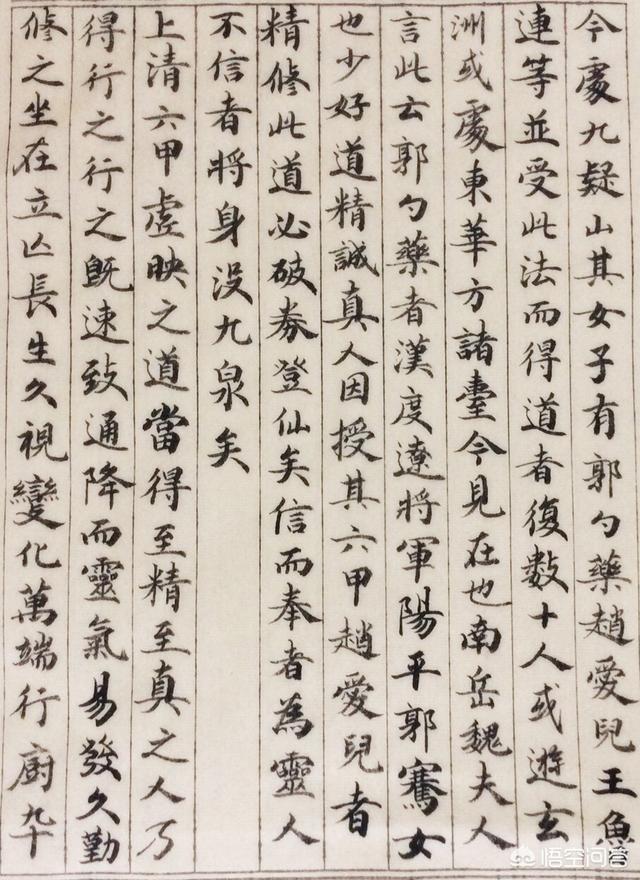 今處九疑山其女子有郭勺藥趙愛兒王魚
連等並受此法而得道者復數十人或遊玄
洲或處東華方諸臺今見在也南岳魏夫人
言此云郭勺藥者漢度遼將軍陽平郭騫女
也少好道精誠真人因授其六甲趙愛兒者
精修此道必破券登仙矣信而奉者為靈人
不信者將身沒九泉矣
上清六甲虛映之道當得至精至真之人乃
得行之行之既速致通降而靈氣易發久勤
修之坐在立亡長生久視變化萬端行廚卆
悟空问答